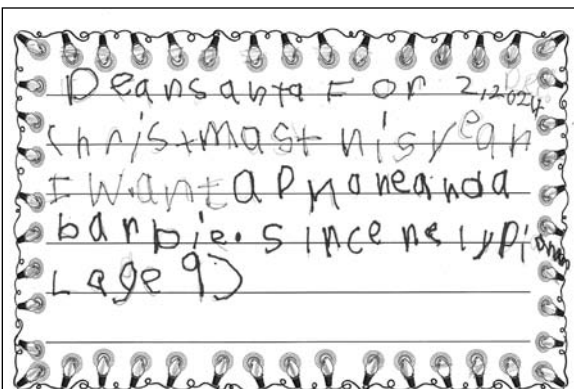 Dear santa For Dec 2,2024
christmas this year
I want a phone and a
barbie. sincerely
(age 9)